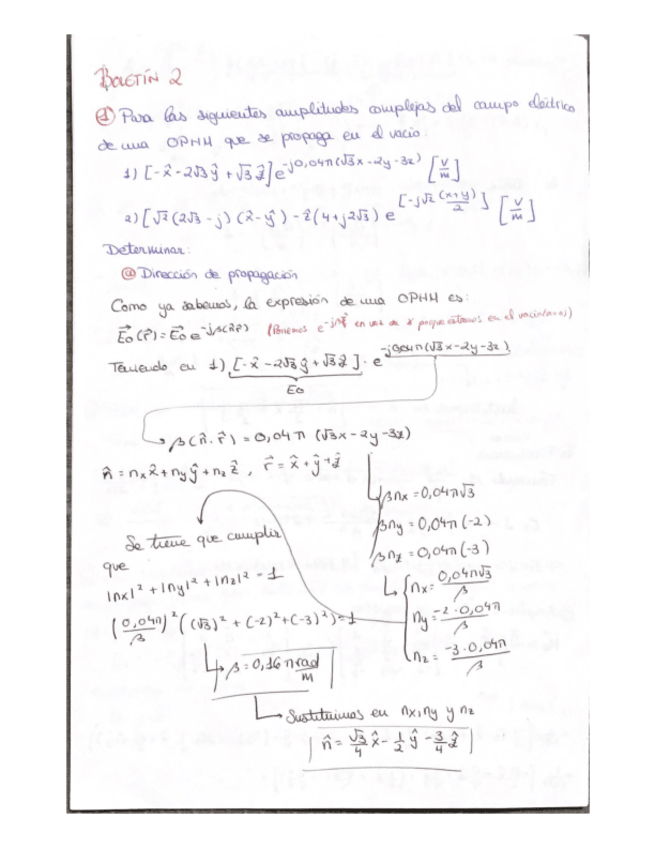 BOLETÍN 2
① Para las siguientes amplitudes complejas del campo eléctrico
de una OPHH que se propaga en el vacío:
1) [-x̂ - 2√3 ŷ + √3 ẑ] e^-j0,04π(√3x - 2y - 3z) [V/m]
2) [√2 (2√3 - j) (x̂ - ŷ) - ẑ (4 + j2√3) e^[-j√2 (x+y)/2] [V/m]
Determinar:
ⓐ Dirección de propagación
Como ya sabemos, la expresión de una OPHH es:
E⃗o(r⃗) = E⃗o e^-jβ(n̂r⃗) (Ponemos e^-jβ en vez de γ porque estamos en el vacío (α=0))
Teniendo en 1) [-x̂ - 2√3 ŷ + √3 ẑ] · e^-j0,04π(√3x - 2y - 3z)
Eo
β(n̂·r⃗) = 0,04π (√3x - 2y - 3z)
n̂ = nx x̂ + ny ŷ + nz ẑ , r⃗ = x̂ + ŷ + ẑ
βnx = 0,04π√3
βny = 0,04π (-2)
βnz = 0,04π (-3)
Se tiene que cumplir
que
|nx|² + |ny|² + |nz|² = 1
nx = 0,04π√3/β
ny = -2·0,04π/β
nz = -3·0,04π/β
(0,04π/β)² ((√3)² + (-2)² + (-3)²) = 1
β = 0,16π rad/m
Sustituimos en nx, ny y nz
n̂ = √3/4 x̂ - 1/2 ŷ - 3/4 ẑ